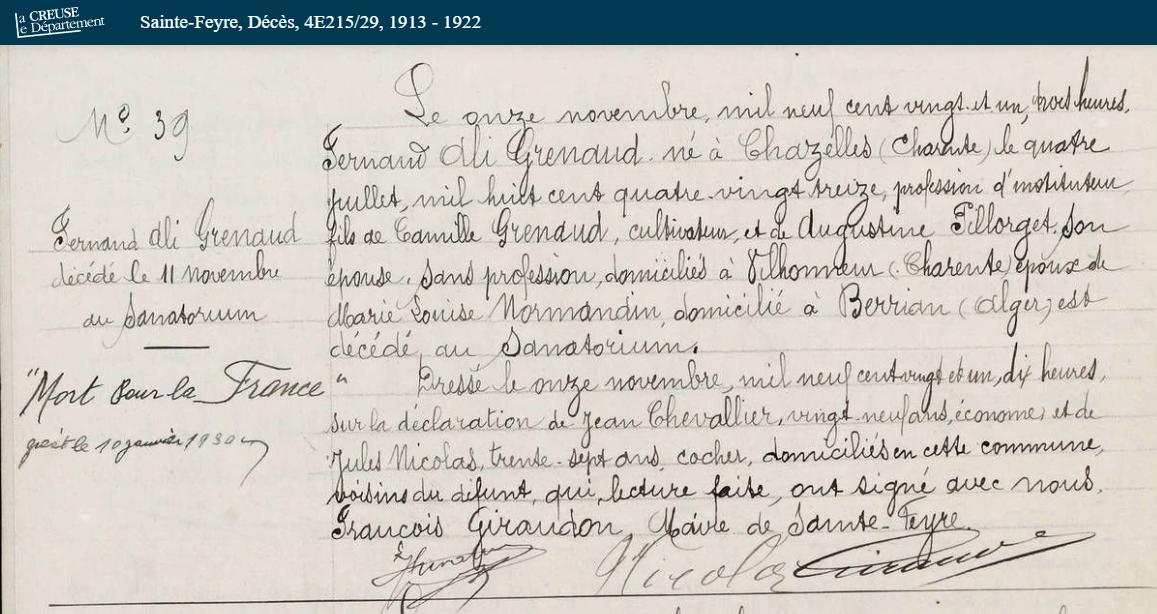 la CREUSE
le Département
Sainte-Feyre, Décès, 4E215/29, 1913 - 1922
Nº 39
Fernand Ali Grenaud
décédé le 11 novembre
au Sanatorium
"Mort pour la France"
le 10 janvier 1930
Le onze novembre, mil neuf cent vingt et un, trois heures,
Fernand Ali Grenaud né à Chazelles (Charente) le quatre
Juillet, mil huit cent quatre-vingt treize, profession d'instituteur
fils de Camille Grenaud, cultivateur, et de Augustine Fillorget, Son
épouse, Sans profession, domiciliés à Vilhonneur (Charente) époux de
Marie Louise Normandin, domicilié à Berrian (Alger) est
décédé, au Sanatorium.
Dressé le onze novembre, mil neuf cent vingt et un, dix heures,
sur la déclaration de Jean Chevallier, vingt-neuf ans, économe, et de
Jules Nicolas, trente-sept ans, cocher, domiciliés en cette commune,
voisins du défunt, qui, lecture faite, ont signé avec nous,
François Giraudon, Maire de Sainte-Feyre
Nicolas